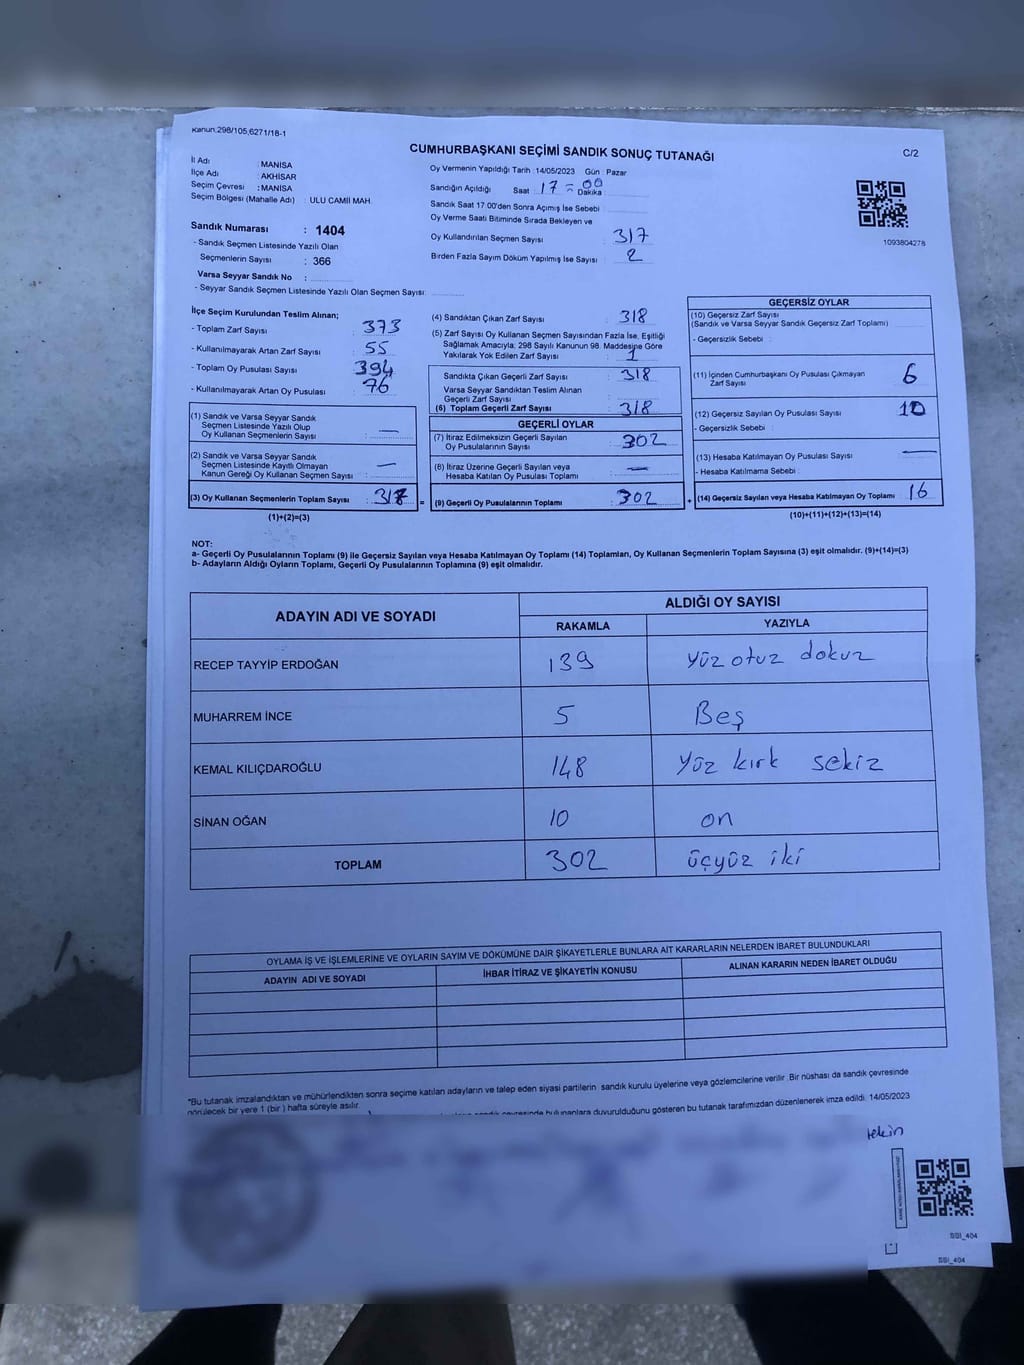 Kanun:298/105,6271/18-1
CUMHURBAŞKANI SEÇİMİ SANDIK SONUÇ TUTANAĞI
C/2
İl Adı : MANİSA
İlçe Adı : AKHİSAR
Seçim Çevresi : MANİSA
Seçim Bölgesi (Mahalle Adı) : ULU CAMİİ MAH.
Sandık Numarası : 1404
- Sandık Seçmen Listesinde Yazılı Olan
Seçmenlerin Sayısı : 366
Varsa Seyyar Sandık No :
- Seyyar Sandık Seçmen Listesinde Yazılı Olan Seçmen Sayısı:
Oy Vermenin Yapıldığı Tarih :14/05/2023 Gün : Pazar
Sandığın Açıldığı Saat 17 = 00 Dakika
Sandık Saat 17:00'den Sonra Açımış İse Sebebi
Oy Verme Saati Bitiminde Sırada Bekleyen ve
Oy Kullandırılan Seçmen Sayısı : 317
Birden Fazla Sayım Döküm Yapılmış İse Sayısı : 2
1093804278
İlçe Seçim Kurulundan Teslim Alınan;
- Toplam Zarf Sayısı : 373
- Kullanılmayarak Artan Zarf Sayısı : 55
- Toplam Oy Pusulası Sayısı : 394
- Kullanılmayarak Artan Oy Pusulası : 76
(1) Sandık ve Varsa Seyyar Sandık
Seçmen Listesinde Yazılı Olup
Oy Kullanan Seçmenlerin Sayısı : —
(2) Sandık ve Varsa Seyyar Sandık
Seçmen Listesinde Kayıtlı Olmayan
Kanun Gereği Oy Kullanan Seçmen Sayısı : —
(3) Oy Kullanan Seçmenlerin Toplam Sayısı : 317 =
(1)+(2)=(3)
(4) Sandıktan Çıkan Zarf Sayısı : 318
(5) Zarf Sayısı Oy Kullanan Seçmen Sayısından Fazla İse, Eşitliği
Sağlamak Amacıyla; 298 Sayılı Kanunun 98. Maddesine Göre
Yakılarak Yok Edilen Zarf Sayısı : 1
Sandıkta Çıkan Geçerli Zarf Sayısı : 318
Varsa Seyyar Sandıktan Teslim Alınan
Geçerli Zarf Sayısı :
(6) Toplam Geçerli Zarf Sayısı : 318
GEÇERLİ OYLAR
(7) İtiraz Edilmeksizin Geçerli Sayılan
Oy Pusulalarının Sayısı : 302
(8) İtiraz Üzerine Geçerli Sayılan veya
Hesaba Katılan Oy Pusulası Toplamı : —
(9) Geçerli Oy Pusulalarının Toplamı : 302 +
GEÇERSİZ OYLAR
(10) Geçersiz Zarf Sayısı
(Sandık ve Varsa Seyyar Sandık Geçersiz Zarf Toplamı)
- Geçersizlik Sebebi :
(11) İçinden Cumhurbaşkanı Oy Pusulası Çıkmayan
Zarf Sayısı : 6
(12) Geçersiz Sayılan Oy Pusulası Sayısı : 10
- Geçersizlik Sebebi :
(13) Hesaba Katılmayan Oy Pusulası Sayısı : —
- Hesaba Katılmama Sebebi :
(14) Geçersiz Sayılan veya Hesaba Katılmayan Oy Toplamı : 16
(10)+(11)+(12)+(13)=(14)
NOT:
a- Geçerli Oy Pusulalarının Toplamı (9) ile Geçersiz Sayılan veya Hesaba Katılmayan Oy Toplamı (14) Toplamları, Oy Kullanan Seçmenlerin Toplam Sayısına (3) eşit olmalıdır. (9)+(14)=(3)
b- Adayların Aldığı Oyların Toplamı, Geçerli Oy Pusulalarının Toplamına (9) eşit olmalıdır.
ADAYIN ADI VE SOYADI ALDIĞI OY SAYISI
RAKAMLA YAZIYLA
RECEP TAYYİP ERDOĞAN 139 yüz otuz dokuz
MUHARREM İNCE 5 Beş
KEMAL KILIÇDAROĞLU 148 yüz kırk sekiz
SİNAN OĞAN 10 on
TOPLAM 302 üçyüz iki
OYLAMA İŞ VE İŞLEMLERİNE VE OYLARIN SAYIM VE DÖKÜMÜNE DAİR ŞİKAYETLERLE BUNLARA AİT KARARLARIN NELERDEN İBARET BULUNDUKLARI
ADAYIN ADI VE SOYADI İHBAR İTİRAZ VE ŞİKAYETİN KONUSU ALINAN KARARIN NEDEN İBARET OLDUĞU
*Bu tutanak imzalandıktan ve mühürlendikten sonra seçime katılan adayların ve talep eden siyasi partilerin sandık kurulu üyelerine veya gözlemcilerine verilir. Bir nüshası da sandık çevresinde
görülecek bir yere 1 (bir) hafta süreyle asılır.
sandık çevresinde bulunanlara duyurulduğunu gösteren bu tutanak tarafımızdan düzenlenerek imza edildi. 14/05/2023
tekin
SBI_404
SBI_404